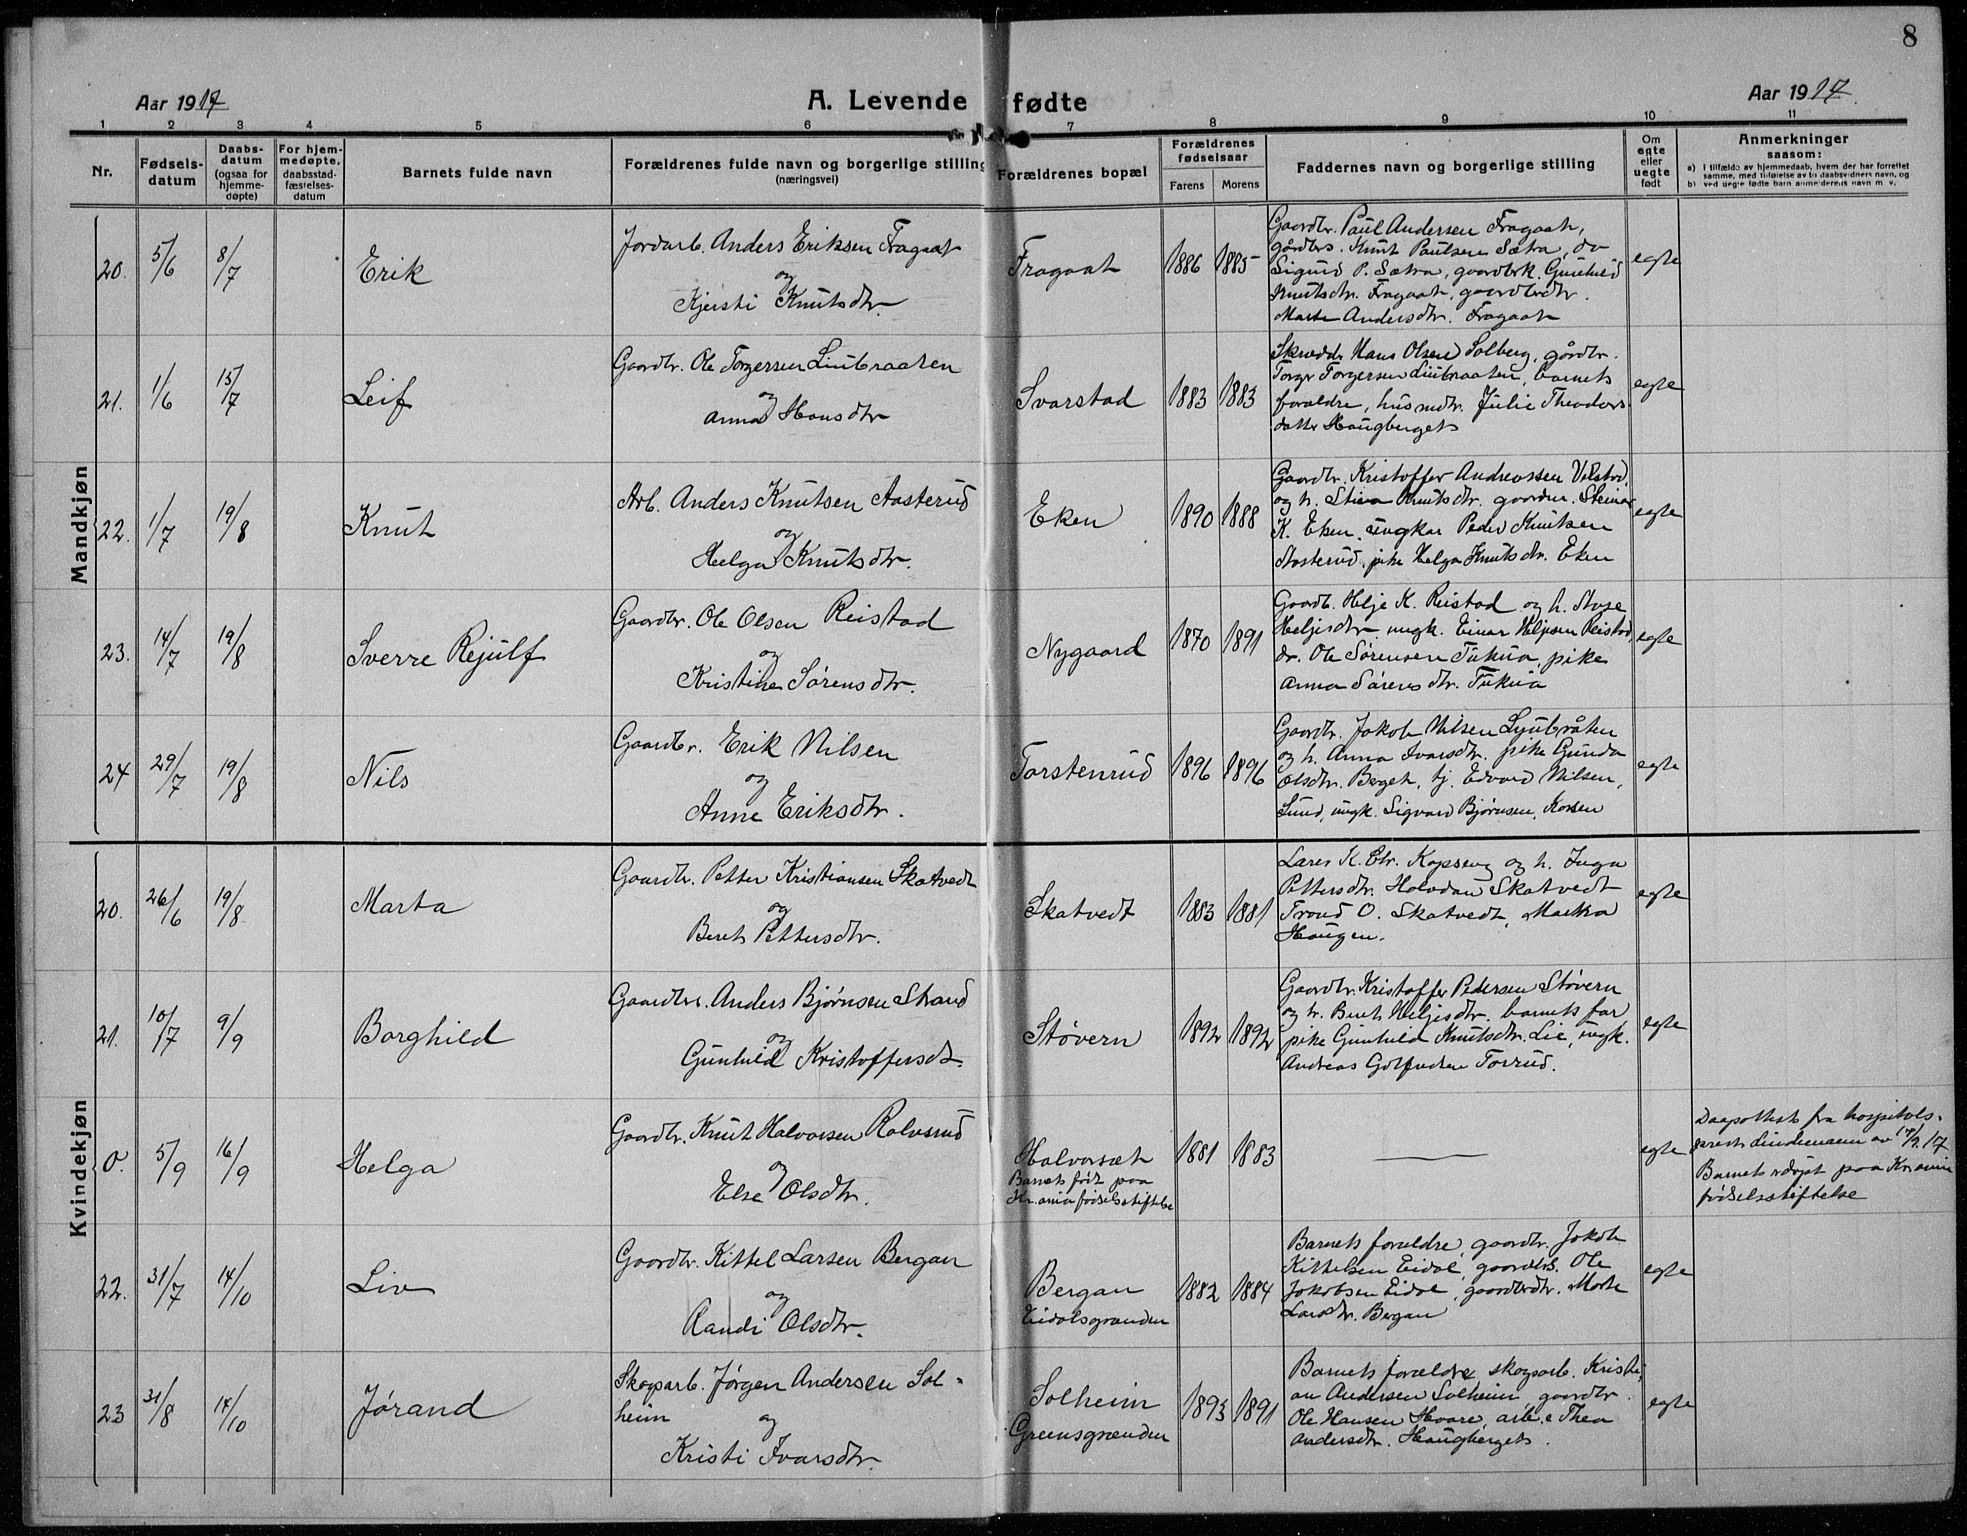 8
Aar 1917
A. Levende fødte
Aar 1917.
1 2 3 4 5 6 7 8 9 10 11
Nr.
Fødsels-
datum
Daabs-
datum
(ogsaa for
hjemme-
døpte)
For hjem-
medøpte,
daabsstad-
fæstelses-
datum
Barnets fulde navn
Forældrenes fulde navn og borgerlige stilling
(næringsvei)
Forældrenes bopæl
Forældrenes
fødselsaar
Farens Morens
Faddernes navn og borgerlige stilling
Om
egte
eller
uegte
født
Anmerkninger
saasom:
a) I tilfælde av hjemmedaab, hvem der har forrettet
samme, med tilføielse av to daabsvidners navn, og
b) ved uegte fødte barn anmelderens navn m. v.
Mandkjøn
20. 5/6 8/7 Erik
Jordarb. Anders Eriksen Fragaat
og
Kjersti Knutsdtr.
Fragaat 1886 1885
Gaardbr. Paul Andersen Fragaat,
gårdbrs. Knut Paulsen Sætra, do
Sigurd P. Sætra, gaardbrk. Gunhild
Knutsdtr. Fragaat, gaardbrdtr.
Marte Andersdtr. Fragaat
egte
21. 1/6 15/7 Leif
Gaardbr. Ole Torgersen Liubraaten
og
Anna Hansdtr
Svarstad 1883 1883
Skrædder Hans Olsen Solberg, gårdbr.
Torger Torgersen Liubraaten, barnets
foraldre, husmdtr. Julie Theodors
datter Haugberget
egte
22. 1/7 19/8 Knut
Arb. Anders Knutsen Aasterud
og
Helga Knutsdtr.
Eken 1890 1888
Gaardbr. Kristoffer Andreassen
og h. Knutsdtr. Steinar
K. Eken, ungkar Peder Knutsen
Aasterud, pike Helga Knutsdtr. Eken
egte
23. 14/7 19/8 Sverre Rejulf
Gaardbr. Ole Olsen Reistad
og
Kristine Sørensdtr.
Nygaard 1870 1891
Gaardb. Helje K. Reistad og h.
Heljesdtr ungk. Einar Heljesen Reistad,
do. Ole Sørensen Tukua, pike
Anna Sørensdtr. Tukua
egte
24 29/7 19/8 Nils
Gaardbr. Erik Nilsen
og
Anne Eriksdtr.
Torstenrud 1896 1896
Gaardbr. Jakob Nilsen Ljubråten
og h. Anna Ivarsdtr. pike Gunda
Olsdtr. Berget, tj. Edvard Nilsen,
Lund, ungk. Sigvard Bjørnsen,
egte
Kvindekjøn
20. 26/6 19/8 Marta
Gaardbr. Petter Kristiansen Skatvedt
og
Beret Pettersdtr.
Skatvedt 1883 1881
Lærer K. Chr. og h. Inga
Pettersdtr. Halvdan Skatvedt
Trond O. Skatvedt, Martha
Haugen.
egte
21. 10/7 9/9 Borghild
Gaardbr. Anders Bjørnsen Strand
og
Gunhild Kristoffersdt.
Støvern 1892 1892
Gaardbr. Kristoffer Pedersen Støvern
og h. Berit Heljesdtr. barnets far
pike Gunhild Knutsdtr. Lie, ungk.
Andreas Torrud.
egte
0. 5/9 16/9 Helga
Gaardbr. Knut Halvorsen Rolvsrud
og
Else Olsdtr.
Halvorsæt
Barnet født paa
Kr.ania fødselsstiftelse
1881 1883
egte
Daapattest fra hospitals-
prest Lindemann av 17/9 17.
Barnet døpt paa Kr.ania
fødselsstiftelse
22. 31/7 14/10 Liv
Gaardbr. Kittel Larsen Bergan
og
Randi Olsdtr.
Bergan
Eidalsgranden
1882 1884
Barnets foraldre, gaardbr. Jakob
Kittelsen Eidal, gaardbrs. Ole
Jakobsen Eidal, gaardbrdtr. Marte
Larsdtr. Bergan
egte
23 31/8 14/10 Jørand
Skogsarb. Jørgen Andersen Sol-
heim
og
Kristi Ivarsdtr.
Solheim
Greensgrænden
1893 1891
Barnets foraldre, skogsarb. Kristi-
an Andersen Solheim, gaardbr.
Ole Hansen Hvare, Thea
Andersdtr. Haugberget.
egte